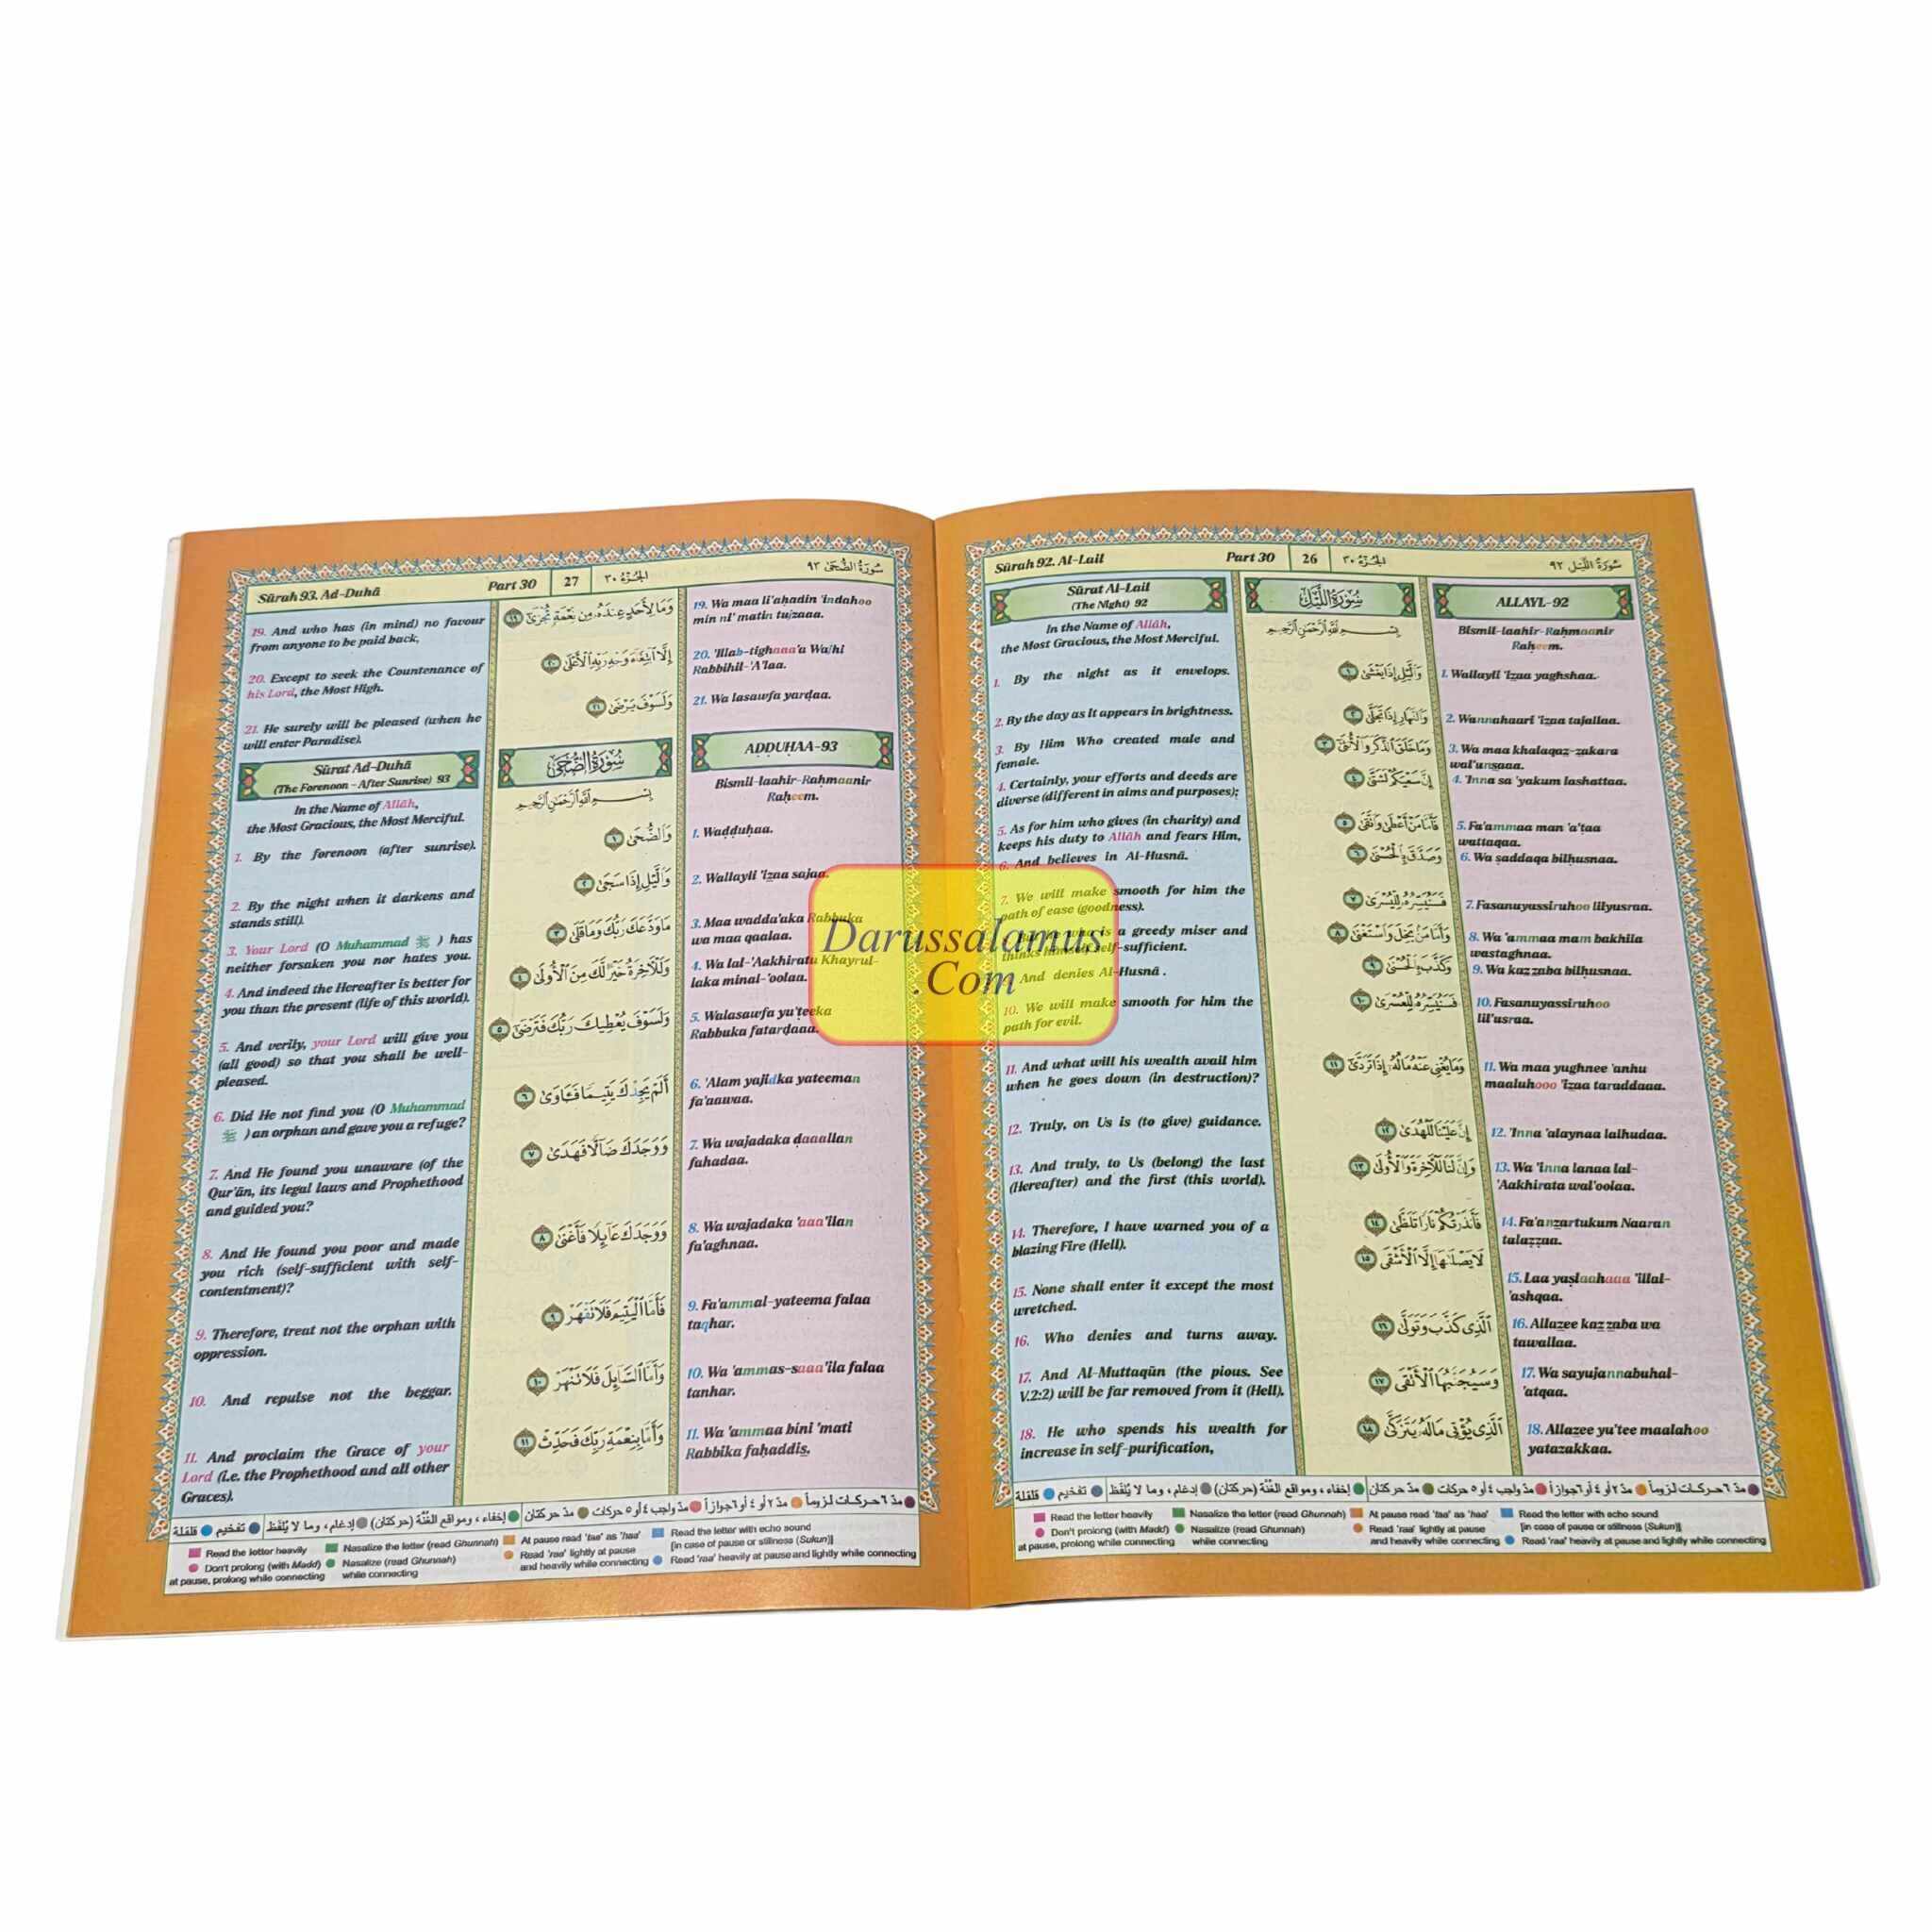 Sûrah 92. Al-Lail
Part 30
26
الجزء ٣٠
سورة الليل ٩٢
Sûrat Al-Lail
(The Night) 92
In the Name of Allâh,
the Most Gracious, the Most Merciful.
1. By the night as it envelops.
2. By the day as it appears in brightness.
3. By Him Who created male and
female.
4. Certainly, your efforts and deeds are
diverse (different in aims and purposes);
5. As for him who gives (in charity) and
keeps his duty to Allâh and fears Him,
6. And believes in Al-Husnâ.
7. We will make smooth for him the
path of ease (goodness).
is a greedy miser and
thinks himself self-sufficient.
And denies Al-Husnâ .
10. We will make smooth for him the
path for evil.
11. And what will his wealth avail him
when he goes down (in destruction)?
12. Truly, on Us is (to give) guidance.
13. And truly, to Us (belong) the last
(Hereafter) and the first (this world).
14. Therefore, I have warned you of a
blazing Fire (Hell).
15. None shall enter it except the most
wretched.
16. Who denies and turns away.
17. And Al-Muttaqûn (the pious. See
V.2:2) will be far removed from it (Hell).
18. He who spends his wealth for
increase in self-purification,
سورة الليل
بسم الله الرحمن الرحيم
والليل إذا يغشى ١
والنهار إذا تجلى ٢
وما خلق الذكر والأنثى ٣
إن سعيكم لشتى ٤
فأما من أعطى واتقى ٥
وصدق بالحسنى ٦
فسنيسره لليسرى ٧
وأما من بخل واستغنى ٨
وكذب بالحسنى ٩
فسنيسره للعسرى ١٠
وما يغني عنه ماله إذا تردى ١١
إن علينا للهدى ١٢
وإن لنا للآخرة والأولى ١٣
فأنذرتكم نارا تلظى ١٤
لا يصلاها إلا الأشقى ١٥
الذي كذب وتولى ١٦
وسيجنبها الأتقى ١٧
الذي يؤتي ماله يتزكى ١٨
ALLAYL-92
Bismil-laahir-Raḥmaanir
Raḥeem.
1. Wallayli 'izaa yaghshaa.
2. Wannahaari 'izaa tajallaa.
3. Wa maa khalaqaz-zakara
wal'unsaaa.
4. 'Inna sa 'yakum lashattaa.
5. Fa'ammaa man 'a'ṭaa
wattaqaa.
6. Wa ṣaddaqa bilḥusnaa.
7. Fasanuyassiruhoo lilyusraa.
8. Wa 'ammaa mam bakhila
wastaghnaa.
9. Wa kazzaba bilḥusnaa.
10. Fasanuyassiruhoo
lil'usraa.
11. Wa maa yughnee 'anhu
maaluhooo 'izaa taraddaaa.
12. 'Inna 'alaynaa lalhudaa.
13. Wa 'inna lanaa lal-
'Aakhirata wal'oolaa.
14. Fa'anzartukum Naaran
talaẓẓaa.
15. Laa yaṣlaahaaa 'illal-
'ashqaa.
16. Allazee kazzaba wa
tawallaa.
17. Wa sayujannabuhal-
'atqaa.
18. Allazee yu'tee maalahoo
yatazakkaa.
مدّ ٦ حركات لزوماً مدّ ٢ أو ٤ أو ٦ جوازاً مدّ واجب ٤ أو ٥ حركات مدّ حركتان إخفاء، ومواقع الغنّة (حركتان) إدغام، وما لا يُلفظ تفخيم قلقلة
Read the letter heavily Nasalize the letter (read Ghunnah) At pause read 'taa' as 'haa' Read the letter with echo sound
Don't prolong (with Madd) Nasalize (read Ghunnah) Read 'raa' lightly at pause [in case of pause or stillness (Sukun)]
at pause, prolong while connecting while connecting and heavily while connecting Read 'raa' heavily at pause and lightly while connecting
Sûrah 93. Ad-Duhâ
Part 30
27
الجزء ٣٠
سورة الضحى ٩٣
19. And who has (in mind) no favour
from anyone to be paid back,
20. Except to seek the Countenance of
his Lord, the Most High.
21. He surely will be pleased (when he
will enter Paradise).
Sûrat Ad-Duhâ
(The Forenoon - After Sunrise) 93
In the Name of Allâh,
the Most Gracious, the Most Merciful.
1. By the forenoon (after sunrise).
2. By the night when it darkens and
stands still).
3. Your Lord (O Muhammad ﷺ ) has
neither forsaken you nor hates you.
4. And indeed the Hereafter is better for
you than the present (life of this world).
5. And verily, your Lord will give you
(all good) so that you shall be well-
pleased.
6. Did He not find you (O Muhammad
ﷺ ) an orphan and gave you a refuge?
7. And He found you unaware (of the
Qur'ân, its legal laws and Prophethood
and guided you?
8. And He found you poor and made
you rich (self-sufficient with self-
contentment)?
9. Therefore, treat not the orphan with
oppression.
10. And repulse not the beggar.
11. And proclaim the Grace of your
Lord (i.e. the Prophethood and all other
Graces).
وما لأحد عنده من نعمة تجزى ١٩
إلا ابتغاء وجه ربه الأعلى ٢٠
ولسوف يرضى ٢١
سورة الضحى
بسم الله الرحمن الرحيم
والضحى ١
والليل إذا سجى ٢
ما ودعك ربك وما قلى ٣
وللآخرة خير لك من الأولى ٤
ولسوف يعطيك ربك فترضى ٥
ألم يجدك يتيما فآوى ٦
ووجدك ضالا فهدى ٧
ووجدك عائلا فأغنى ٨
فأما اليتيم فلا تقهر ٩
وأما السائل فلا تنهر ١٠
وأما بنعمة ربك فحدث ١١
19. Wa maa li'aḥadin 'indahoo
min ni' matin tujzaaa.
20. 'Illab-tighaaa'a Wajhi
Rabbihil-'A'laa.
21. Wa lasawfa yarḍaa.
ADDUḤAA-93
Bismil-laahir-Raḥmaanir
Raḥeem.
1. Waḍḍuḥaa.
2. Wallayli 'izaa sajaa.
3. Maa wadda'aka Rabbuka
wa maa qaalaa.
4. Wa lal-'Aakhiratu Khayrul-
laka minal-'oolaa.
5. Walasawfa yu'ṭeeka
Rabbuka fatarḍaaa.
6. 'Alam yajidka yateeman
fa'aawaa.
7. Wa wajadaka ḍaaallan
fahadaa.
8. Wa wajadaka 'aaa'ilan
fa'aghnaa.
9. Fa'ammal-yateema falaa
taqhar.
10. Wa 'ammas-saaa'ila falaa
tanhar.
11. Wa 'ammaa bini 'mati
Rabbika faḥaddis.
مدّ ٦ حركات لزوماً مدّ ٢ أو ٤ أو ٦ جوازاً مدّ واجب ٤ أو ٥ حركات مدّ حركتان إخفاء، ومواقع الغنّة (حركتان) إدغام، وما لا يُلفظ تفخيم قلقلة
Read the letter heavily Nasalize the letter (read Ghunnah) At pause read 'taa' as 'haa' Read the letter with echo sound
Don't prolong (with Madd) Nasalize (read Ghunnah) Read 'raa' lightly at pause [in case of pause or stillness (Sukun)]
at pause, prolong while connecting while connecting and heavily while connecting Read 'raa' heavily at pause and lightly while connecting
Darussalamus
.Com